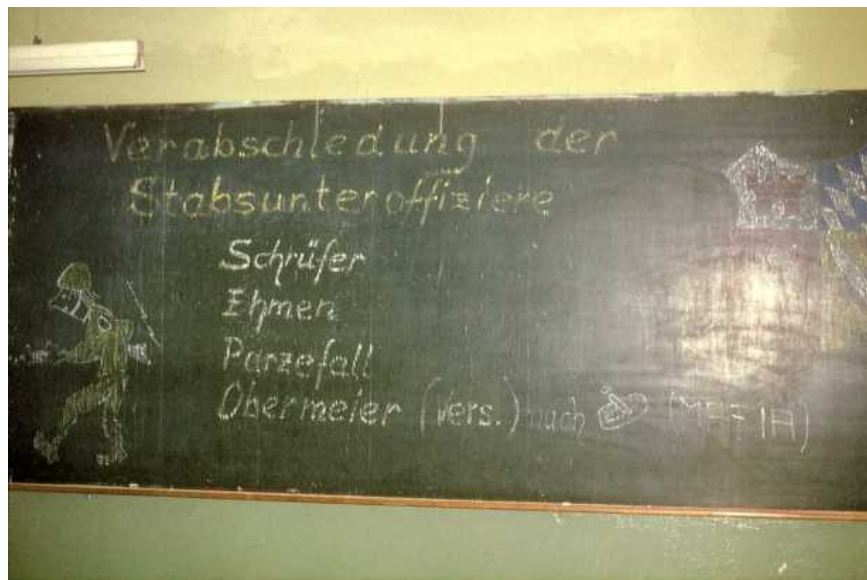 Verabschiedung der
Stabsunteroffiziere
Schrüfer
Ehmen
Parzefall
Obermeier (vers.) nach